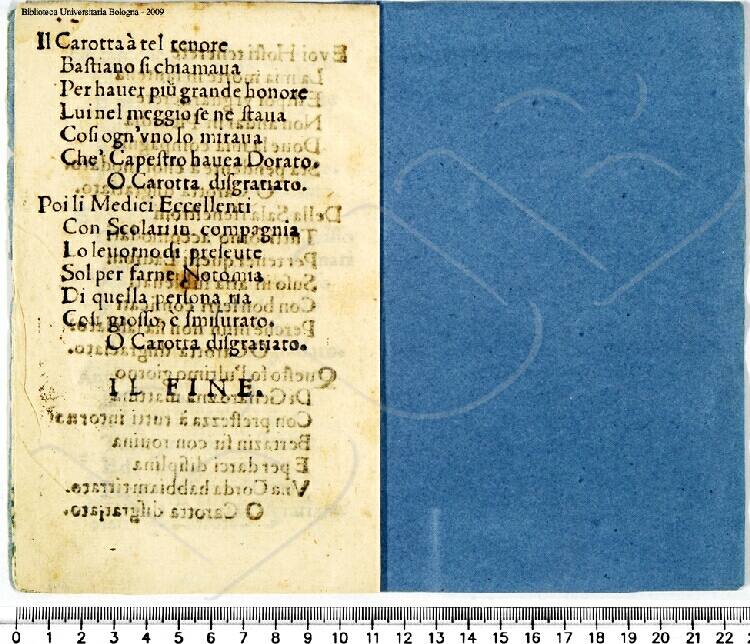 Biblioteca Universitaria Bologna - 2009
Il Carotta à tel tenore
Bastiano si chiamaua
Per hauer più grande honore
Lui nel meggio se ne staua
Cosi ogn'vno lo miraua
Che' Capestro hauea Dorato.
O Carotta disgratiato.
Poi li Medici Eccellenti
Con Scolari in compagnia
Lo leuorno di presente
Sol per farne Notomia
Di quella persona ria
Cosi grosso, e smisurato.
O Carotta disgratiato.
IL FINE.
0 1 2 3 4 5 6 7 8 9 10 11 12 13 14 15 16 17 18 19 20 21 22